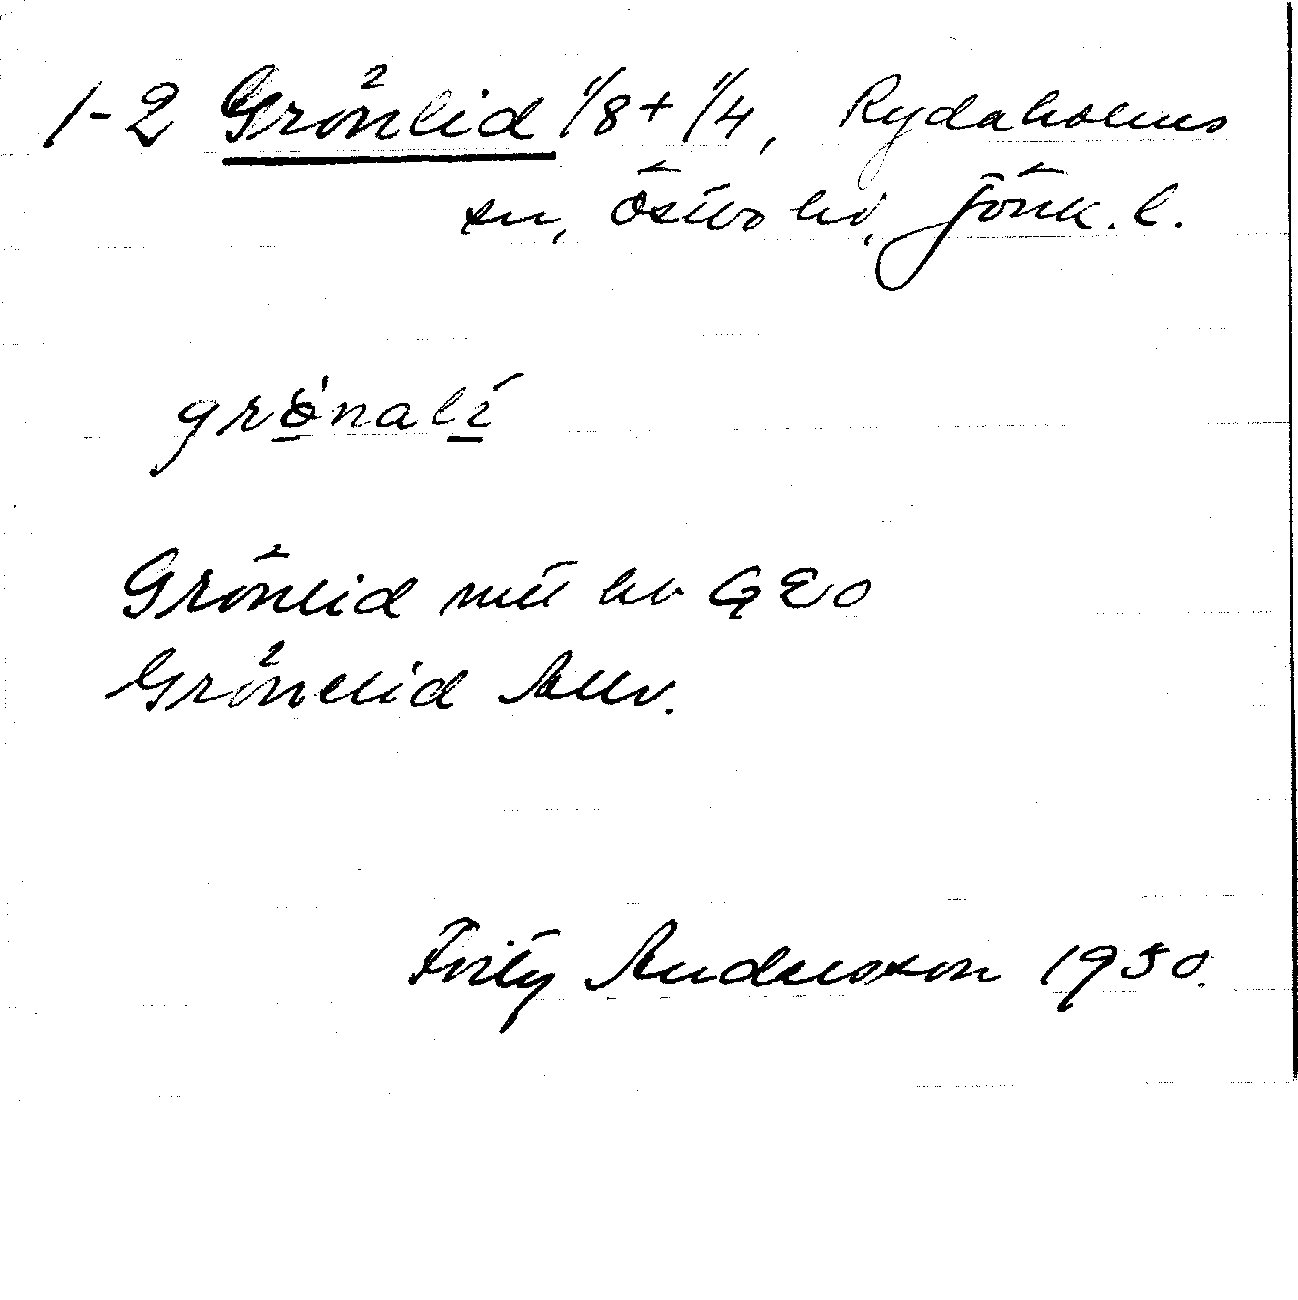 1-2 Grönlid 1/8 + 1/4, Rydaholms
sn, Östbo hd, Jönk. l.
grönalí
Grönlid
Grönelid
Fritz Andersson 1930.